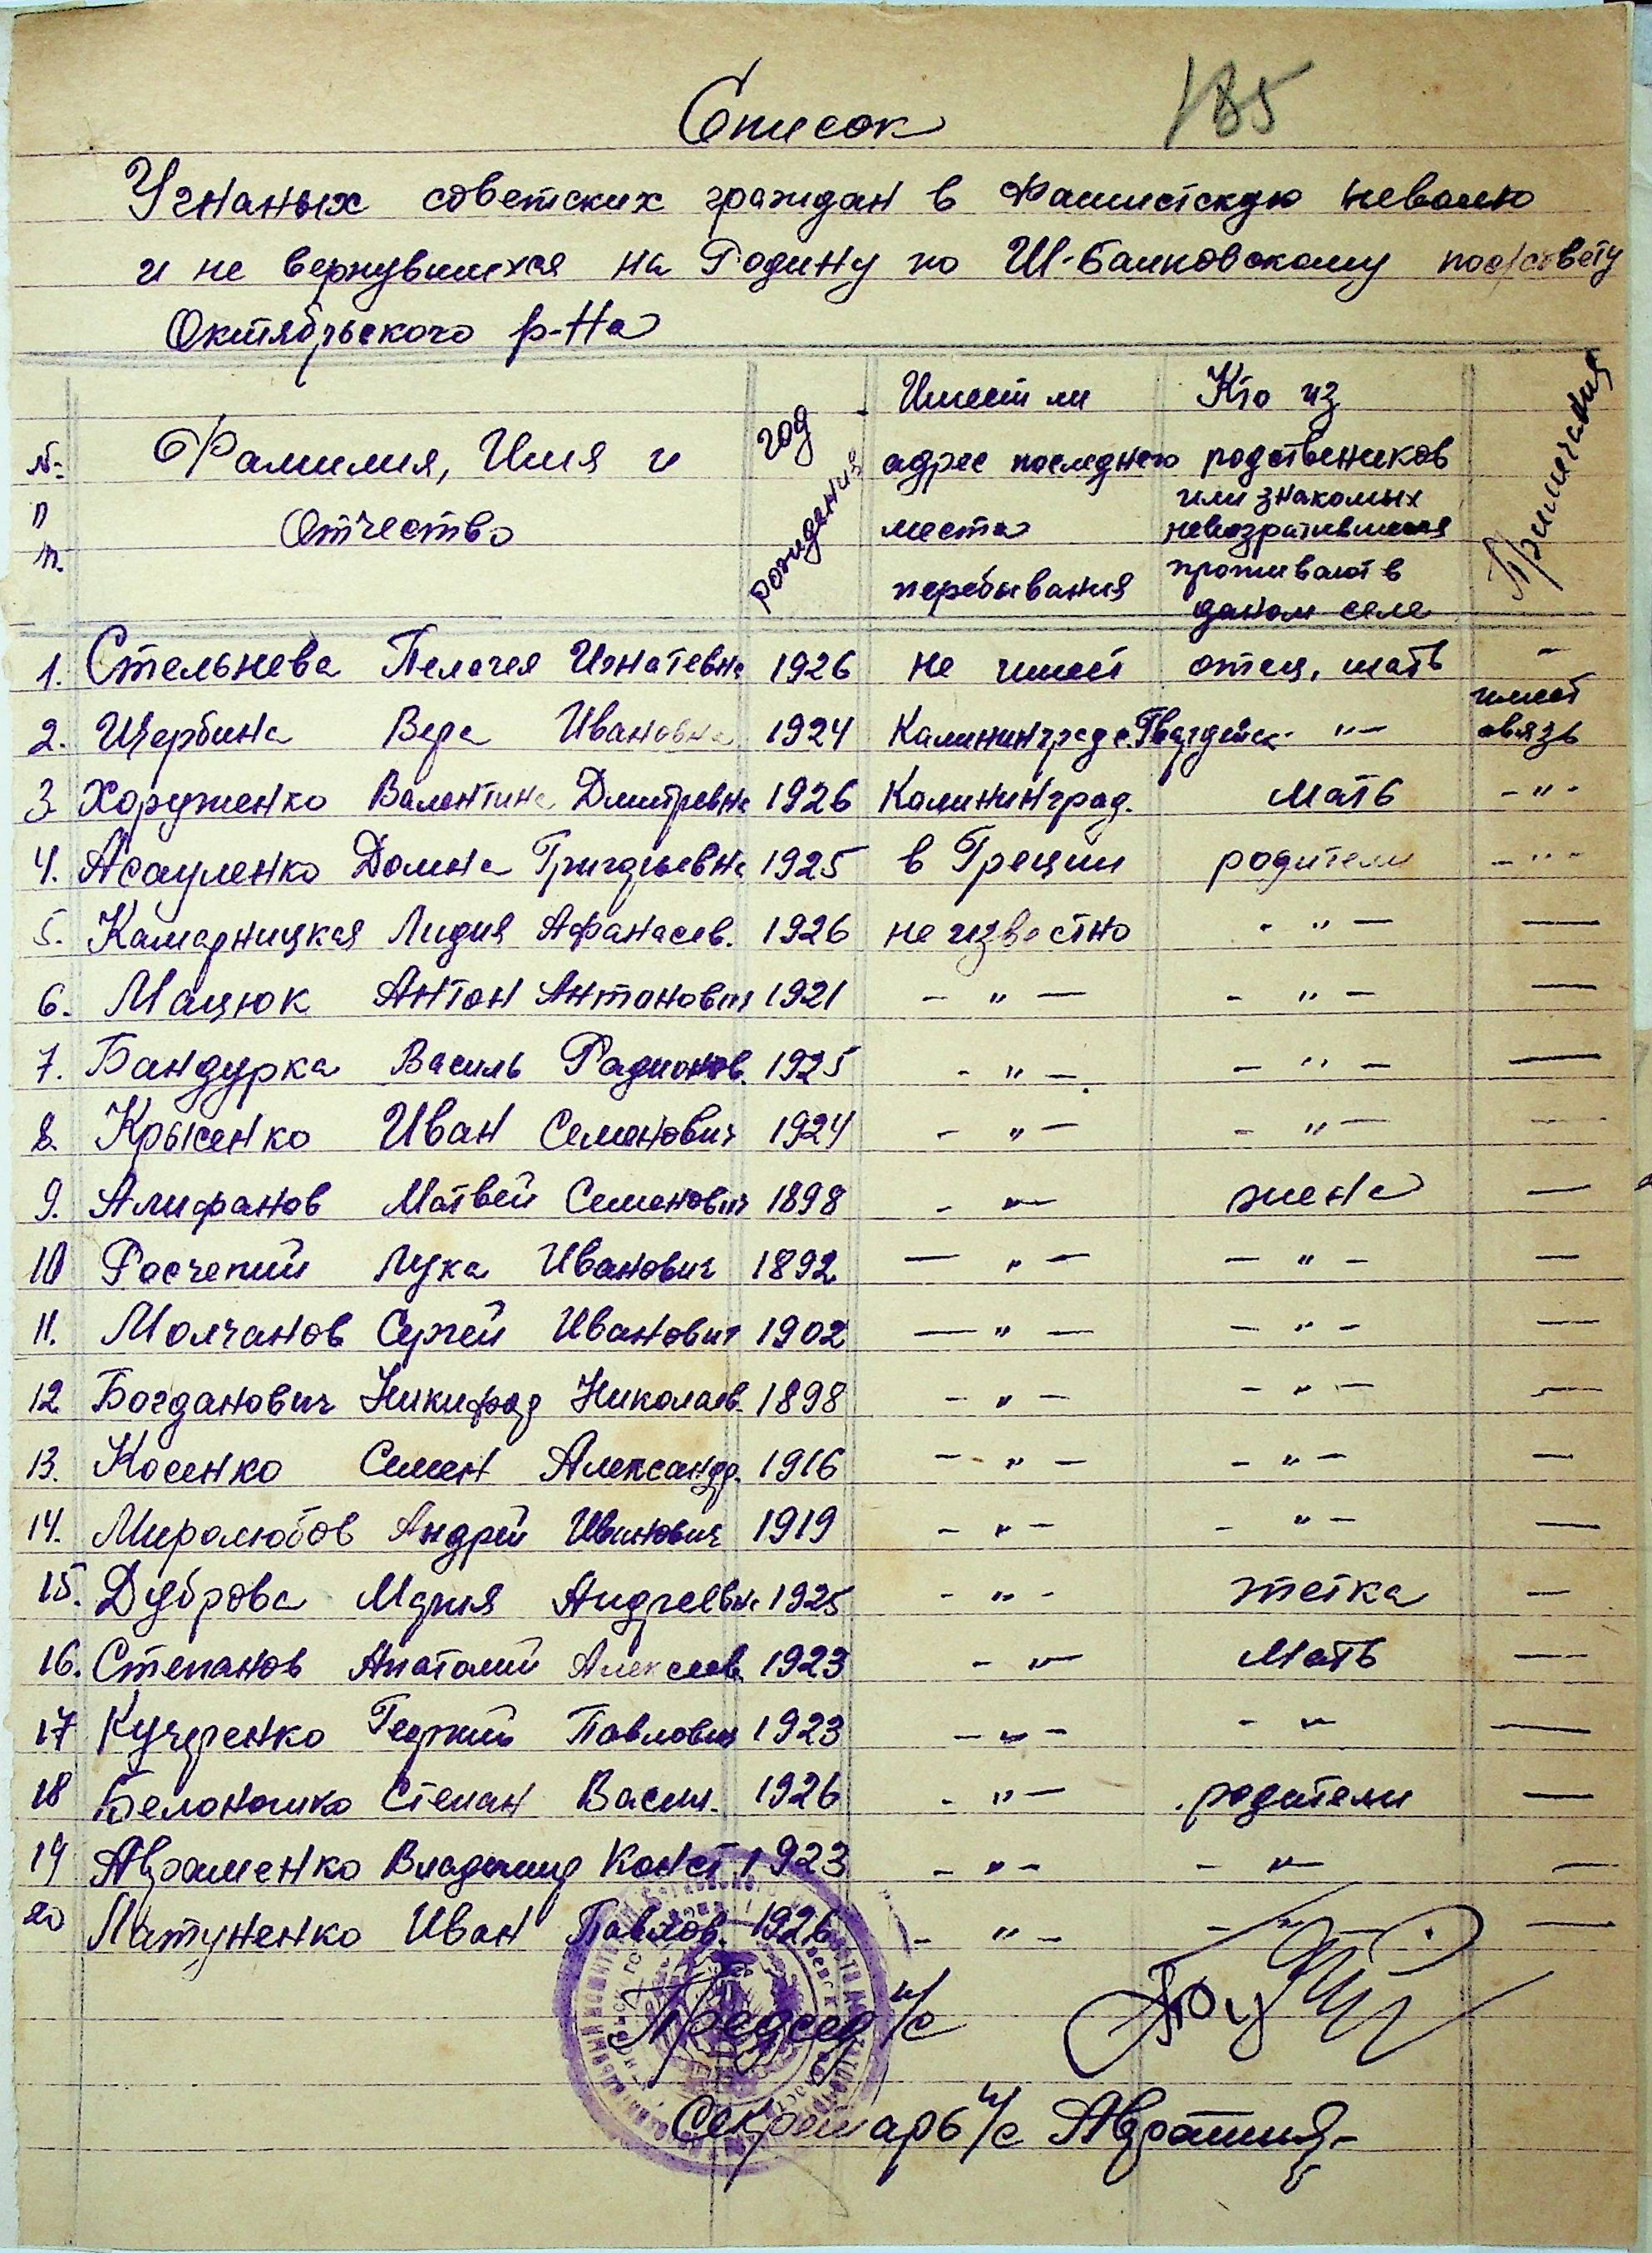 Список 185
Угнаных советских граждан в фашистскую неволю
и не вернувшихся на Родину по Ш-Балковскому пос/совету
Октябрьского р-на
№ п п.
Фамилия, Имя и Отчество
год рождения
Имеет ли адрес последнего места пребывания
Кто из родствеников или знакомых невозратившихся проживают в даном селе
Примечания
1. Стельнева Пелагея Игнатевна 1926 не имеет отец, мать -
2. Щербина Вера Ивановна 1924 Калининград г. Гвардейск - " - имеет связь
3. Харженко Валентина Дмитревна 1926 Калининград. Мать - " -
4. Асауленко Домна Григорьевна 1925 в Греции родители - " -
5. Камарницкая Лидия Афанасев. 1926 не известно - " - —
6. Мацюк Антон Антонович 1921 - " - - " - —
7. Бандурка Василь Радионов. 1925 - " - - " - —
8. Крысенко Иван Семенович 1924 - " - - " - —
9. Алифанов Матвей Семенович 1898 - " - жена —
10 Росчепий Лука Иванович 1892 - " - - " - —
11. Молчанов Сергей Иванович 1902 - " - - " - —
12 Богданович Никифор Николаев. 1898 - " - - " - —
13. Косенко Семен Александр. 1916 - " - - " - —
14. Миролюбов Андрей Иванович 1919 - " - - " - —
15. Дуброва Мария Андреевна 1925 - " - тетка —
16. Степанов Анатолий Алексеев. 1923 - " - Мать —
17 Кучеренко Георгий Павлович 1923 - " - - " - —
18 Белоножко Степан Васил. 1926 - " - родители —
19 Авраменко Владимир Конст. 1923 - " - - " - —
20 Латуненко Иван Павлов. 1926 - " - - " - —
Председ п/с
Секретарь п/с